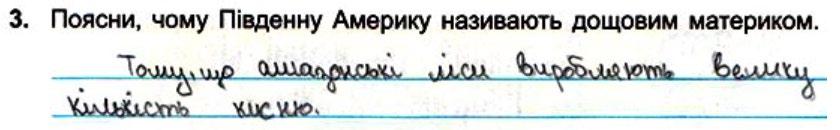 3. Поясни, чому Південну Америку називають дощовим материком.
Тому, що амазонські ліси виробляють велику
кількість кисню.